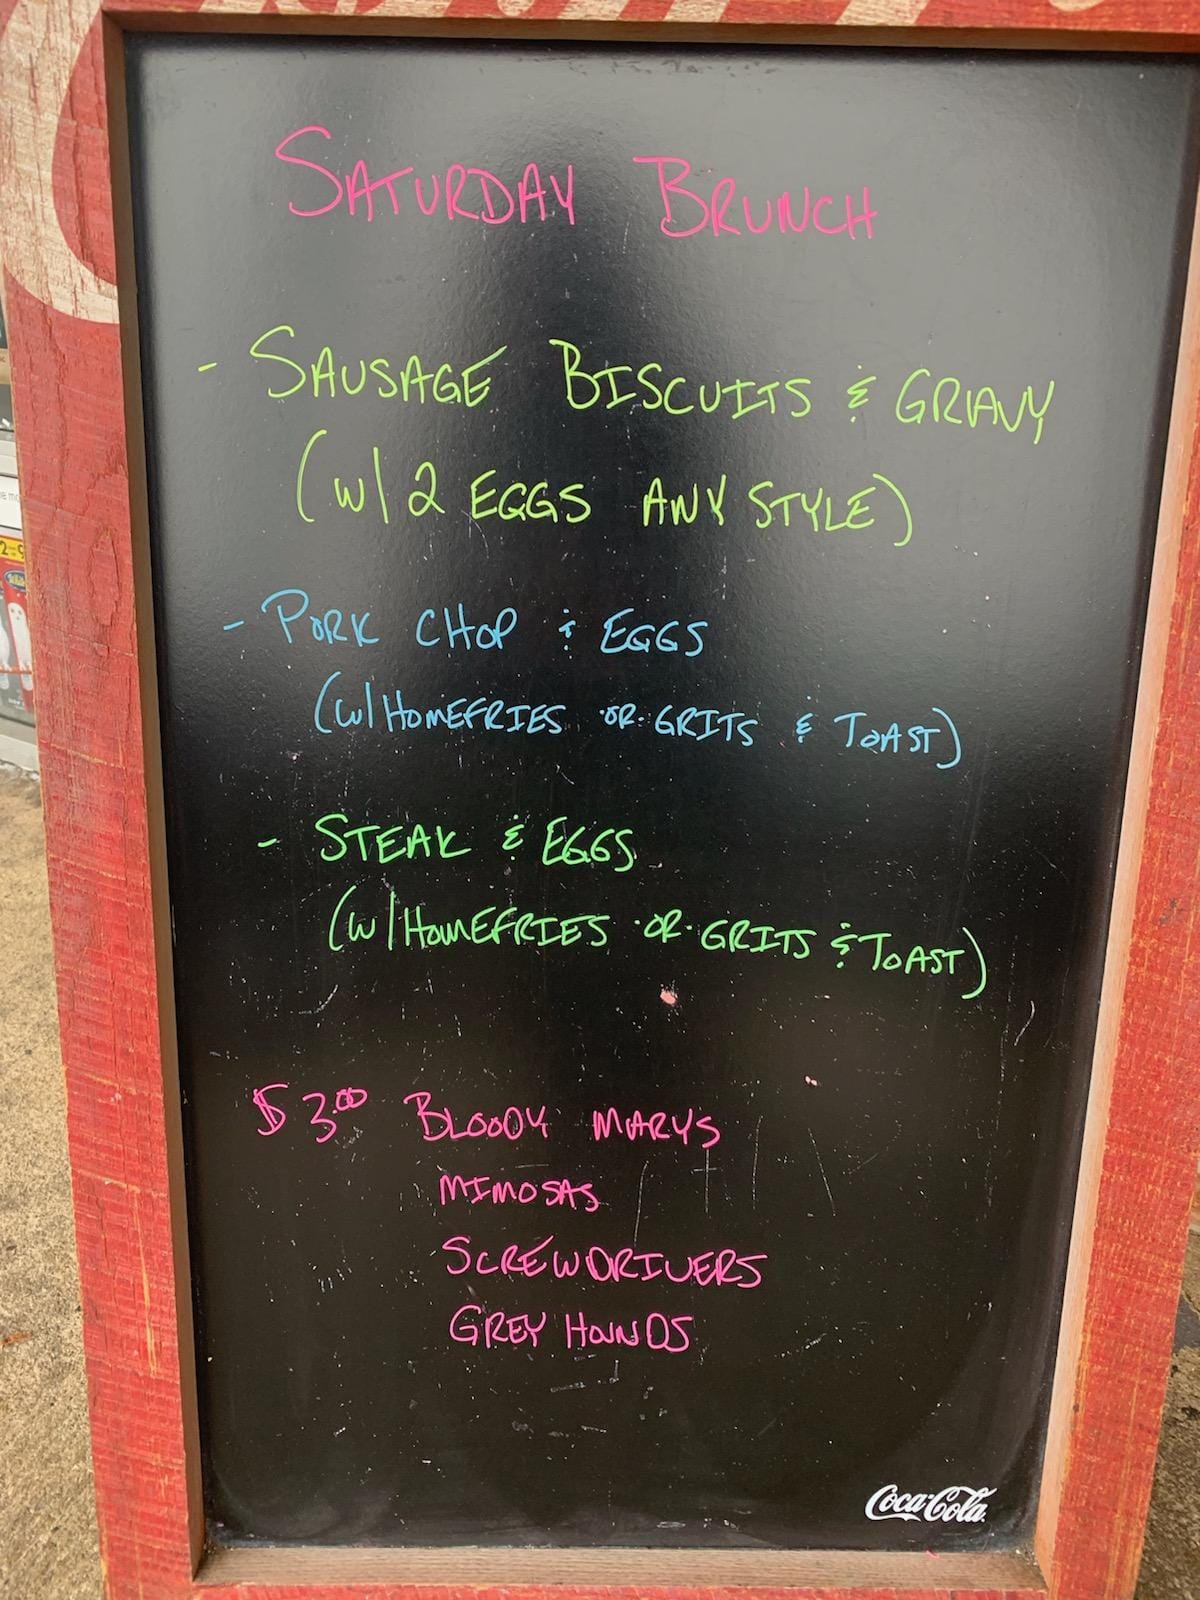 SATURDAY BRUNCH
- SAUSAGE BISCUITS & GRAVY
(W/ 2 EGGS ANY STYLE)
- PORK CHOP & EGGS
(W/ HOMEFRIES OR GRITS & TOAST)
- STEAK & EGGS
(W/ HOMEFRIES OR GRITS & TOAST)
$3.00 BLOODY MARYS
MIMOSAS
SCREWDRIVERS
GREY HOUNDS
Coca-Cola